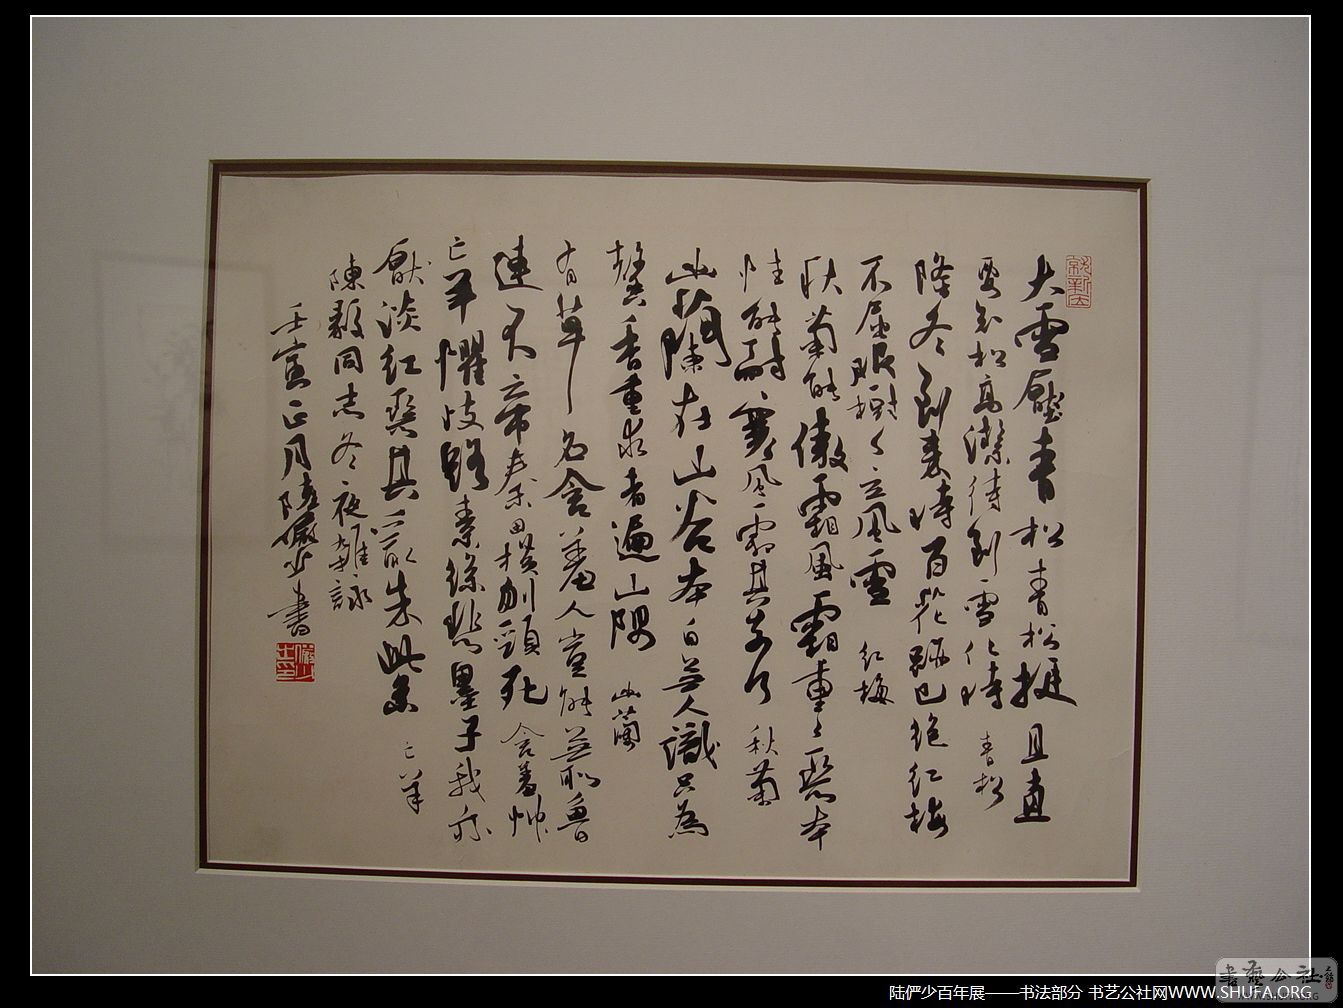 大雪壓青松青松挺且直
要知松高潔待到雪化時 青松
隆冬到來時百花跡已絕紅梅
不屈服樹々立風雪 紅梅
秋菊能傲霜風霜重々惡本
性能耐寒風霜其奈何 秋菊
幽蘭在山谷本自無人識只為
馨香重求者遍山隅 幽蘭
有草名含羞人豈能無恥魯
連不帝秦田橫刎頸死 含羞艸
亡羊懼歧路素絲悲墨子我亦
厭淡紅惡其亂朱紫 亡羊
陳毅同志冬夜雜詠
壬寅正月陸儼少書
陆俨少百年展——书法部分 书艺公社网WWW.SHUFA.ORG
書藝公社